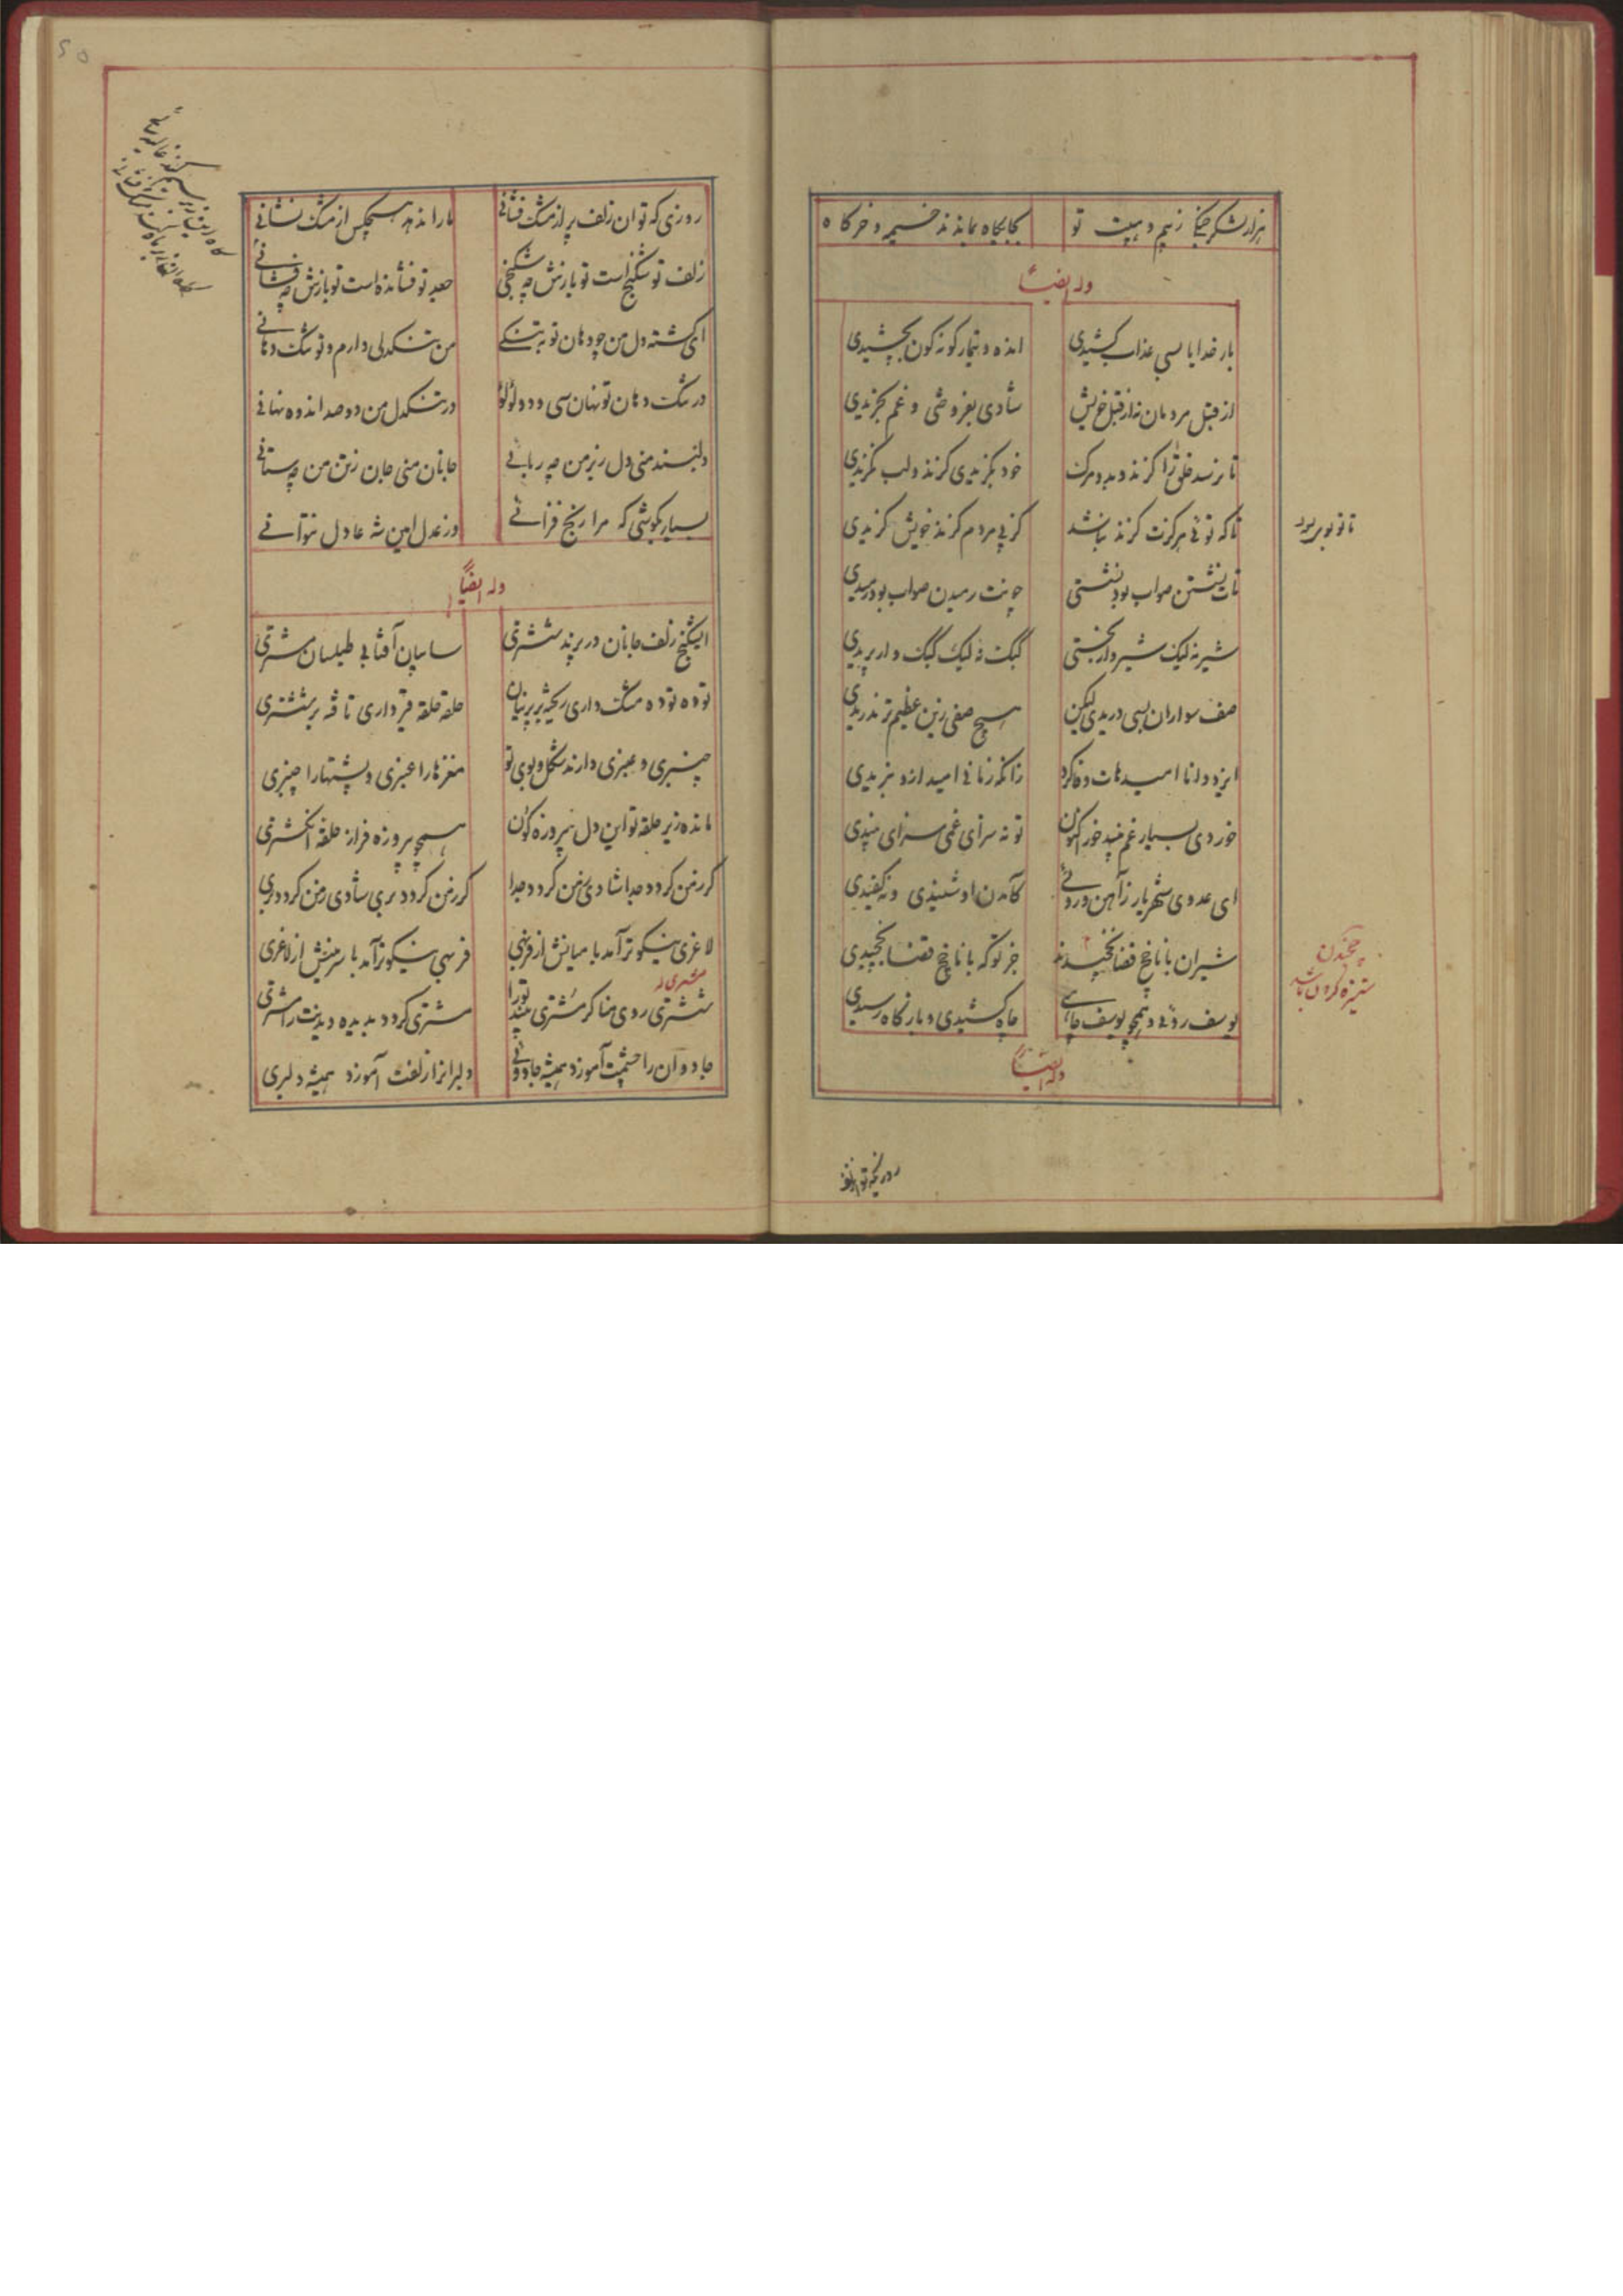 هزار لشکر جنگی ز بیم و هیبت تو بجایگاه بماندند خیمه و خرگاه
وله ایضاً
بار خدایا بسی عذاب کشیدی انده و تیمار گونه گون بچشیدی
از قبل مردمان نه از قبل خویش شادی بفروختی و غم بخریدی
تا نرسد خلق را گزند و بد و مرگ خود بگزیدی گزند و لب نگزیدی
تا که تو را هرگزت گزند نباشد کز پی مردم گزند خویش گزیدی
تات نشستن صواب بود نشستی چونت رمیدن صواب بود رمیدی
شیر نه لیک شیروار بجستی گبک نه لیک گبک وار پریدی
صف سواران بسی دریدی لیکن هیچ صفی زین عظیم تر ندریدی
ایزد دانا امیدهات وفا کرد زانکه زمانی امید ازو نبریدی
خوردی بسیار غم نبید خور اکنون تو نه سزای غمی سزای نبیدی
ای عدوی شهریار ز آهن و روئی کآمدن او شنیدی و نکفیدی
شیران با ناخچ قضا نچخیدند جز تو که با ناخچ قضا بچخیدی
یوسف روئی و همچو یوسف چاهی چاه کشیدی و بارگاه رسیدی
وله ایضاً
چخیدن
ستیزه کردن باشد
روزیکه تو آن زلف
روزی که تو ان زلف پر از مشک فشانی ما را ندهد هیچکس از مشک نشانی
زلف تو شکنج است تو بازش چه شکنجی جعد تو فشانده است تو بازش چه فشانی
ای گشته دل من چو دهان تو بتنگی من تنگدلی دارم و تو تنگ دهانی
در تنگ دهان تو نهان سی و دو لؤلؤ در تنگدل من دو صد اندوه نهانی
دلبند منی دل ز بر من چه ربائی جانان منی جان ز تن من چه ستانی
بسیار بکوشی که مرا رنج فزائی در عدل امین شه عادل نتوانی
وله ایضاً
ای شکنج زلف جانان بر پرند ششتری سایبان آفتابی طیلسان مشتری
توده توده مشک داری ریخته بر پرنیان حلقه حلقه قیر داری تافته بر ششتری
چنبری و عنبری دارند شکل و بوی تو مغزها را عنبری و پشتها را چنبری
مانده زیر حلقه تو این دل پیروزه گون همچو پیروزه فراز حلقه انگشتری
گر ز من گردد جدا شادی ز من گردد جدا گر ز من گردد بری شادی ز من گردد بری
لاغری نیکوتر آمد با میانش از فربهی فربهی نیکوتر آمد با سرینش از لاغری
ششتری روی منا گر مشتری بیند تو را مشتری گردد بدیده دیدنت را مشتری
جادوان را چشمت آموزد همیشه جادوئی دلبران را زلفت آموزد همیشه دلبری